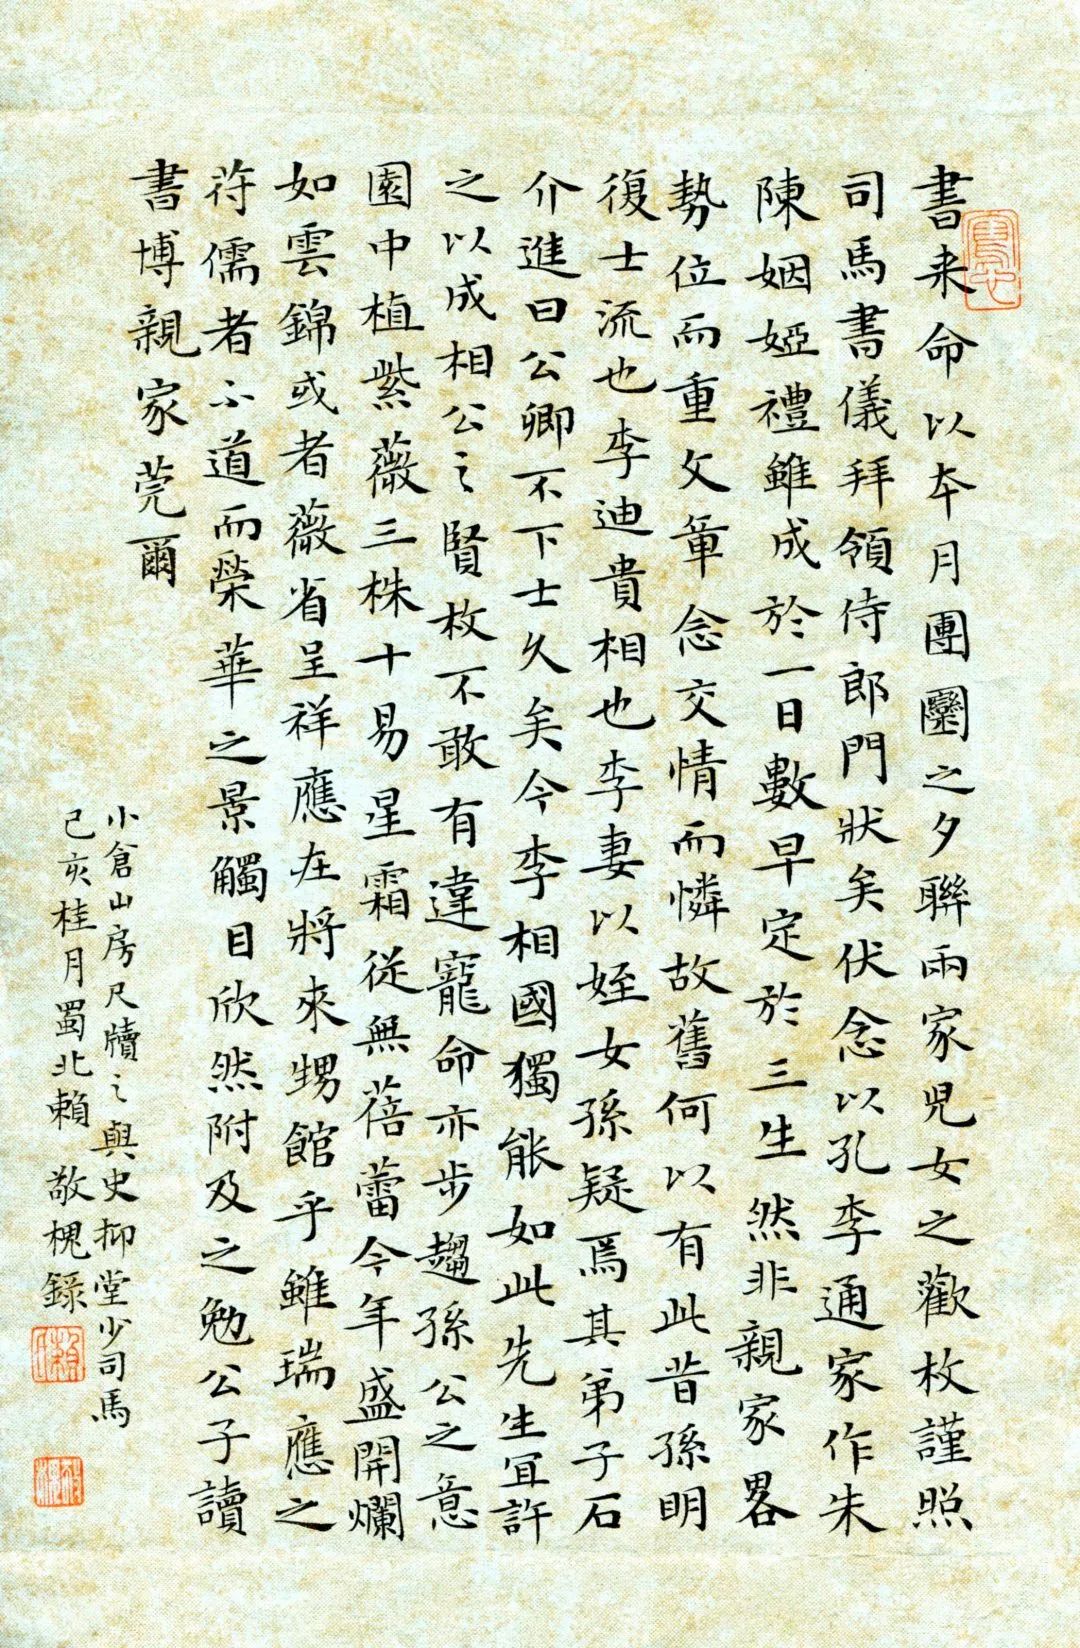 書来命以本月團圞之夕聯兩家児女之歡枚謹照
司馬書儀拜領侍郎門狀矣伏念以孔李通家作朱
陳姻婭禮雖成於一日數早定於三生然非親家畧
勢位而重文章念交情而憐故舊何以有此昔孫明
復士流也李迪貴相也李妻以姪女孫疑焉其弟子石
介進曰公卿不下士久矣今李相國獨能如此先生宜許
之以成相公之賢枚不敢有違寵命亦步趨孫公之意
園中植紫薇三株十易星霜從無蓓蕾今年盛開爛
如雲錦或者薇省呈祥應在將來甥館乎雖瑞應之
符儒者不道而榮華之景觸目欣然附及之勉公子讀
書博親家莞爾
小倉山房尺牘之與史抑堂少司馬
己亥桂月蜀北賴敬槐錄